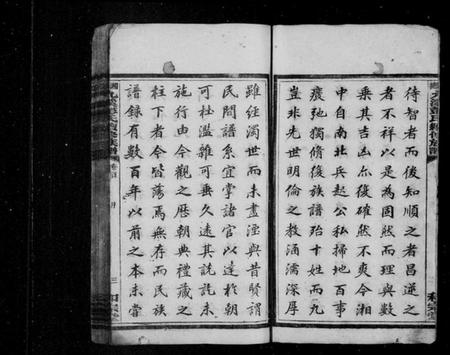 待智者而後知順之者昌逆之
者不祥以是為固然而理與數
乘其吉凶尔後確然不爽今湘
中自南北兵起公私掃地百事
廢弛獨脩後族譜殆十姓而九
豈非先世明倫之教涌濡深厚
雖經濁世而未盡湮與昔賢謂
民間譜系宜掌諸官以達於朝
可杜濫雜可垂久遠其說訖未
施行由今觀之歷朝典禮藏之
柱下者今皆蕩焉無存而民族
譜錄有數百年以前之本未嘗
氏續修族譜
卷首
三